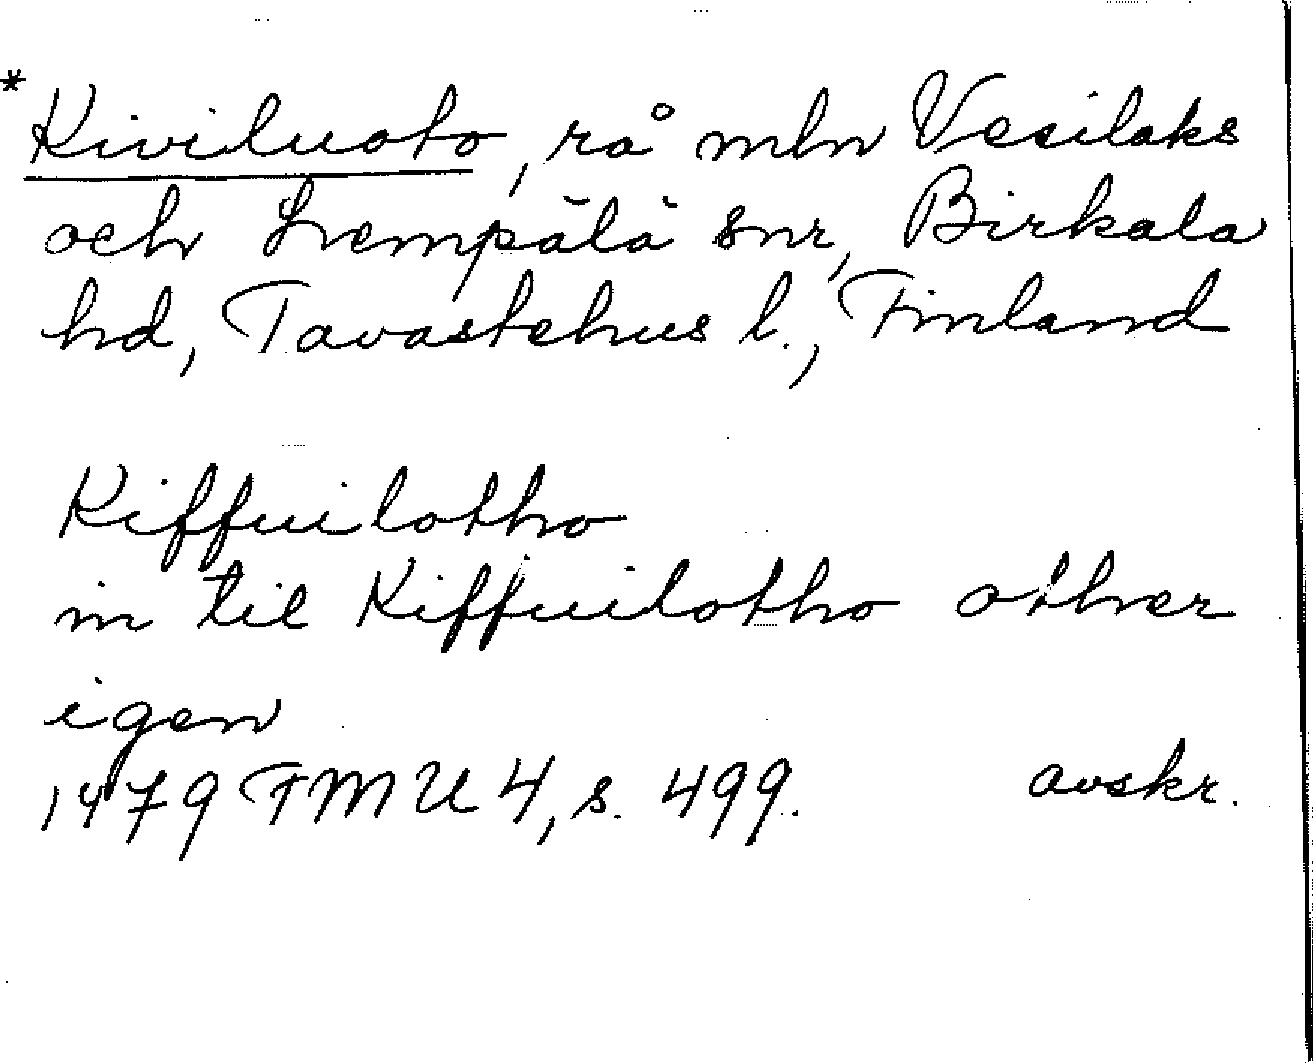 *Kiviluoto, rå mln Vesilaks
och Lempälä snr, Birkala
hd, Tavastehus l., Finland
Kiffuilotho
in til Kiffuilotho other
igen
1479 FMU 4, s. 499. avskr.